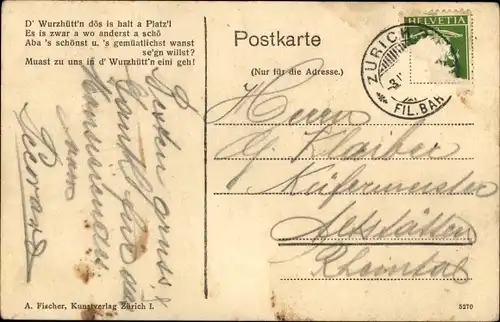 D' Wurzhütt'n dös is halt a Platz'l
Es is zwar a wo anderst a schö
Aba 's schönst u. 's gemüatlichst wanst
se'gn willst?
Muast zu uns in d' Wurzhütt'n eini geh!
Postkarte
(Nur für die Adresse.)
HELVETIA
ZÜRICH
FIL. BAH
Herrn
G. Klaiber
Küfermeister
Altstätten
Rheintal
Besten Gruss &
von
A. Fischer, Kunstverlag Zürich I.
5270